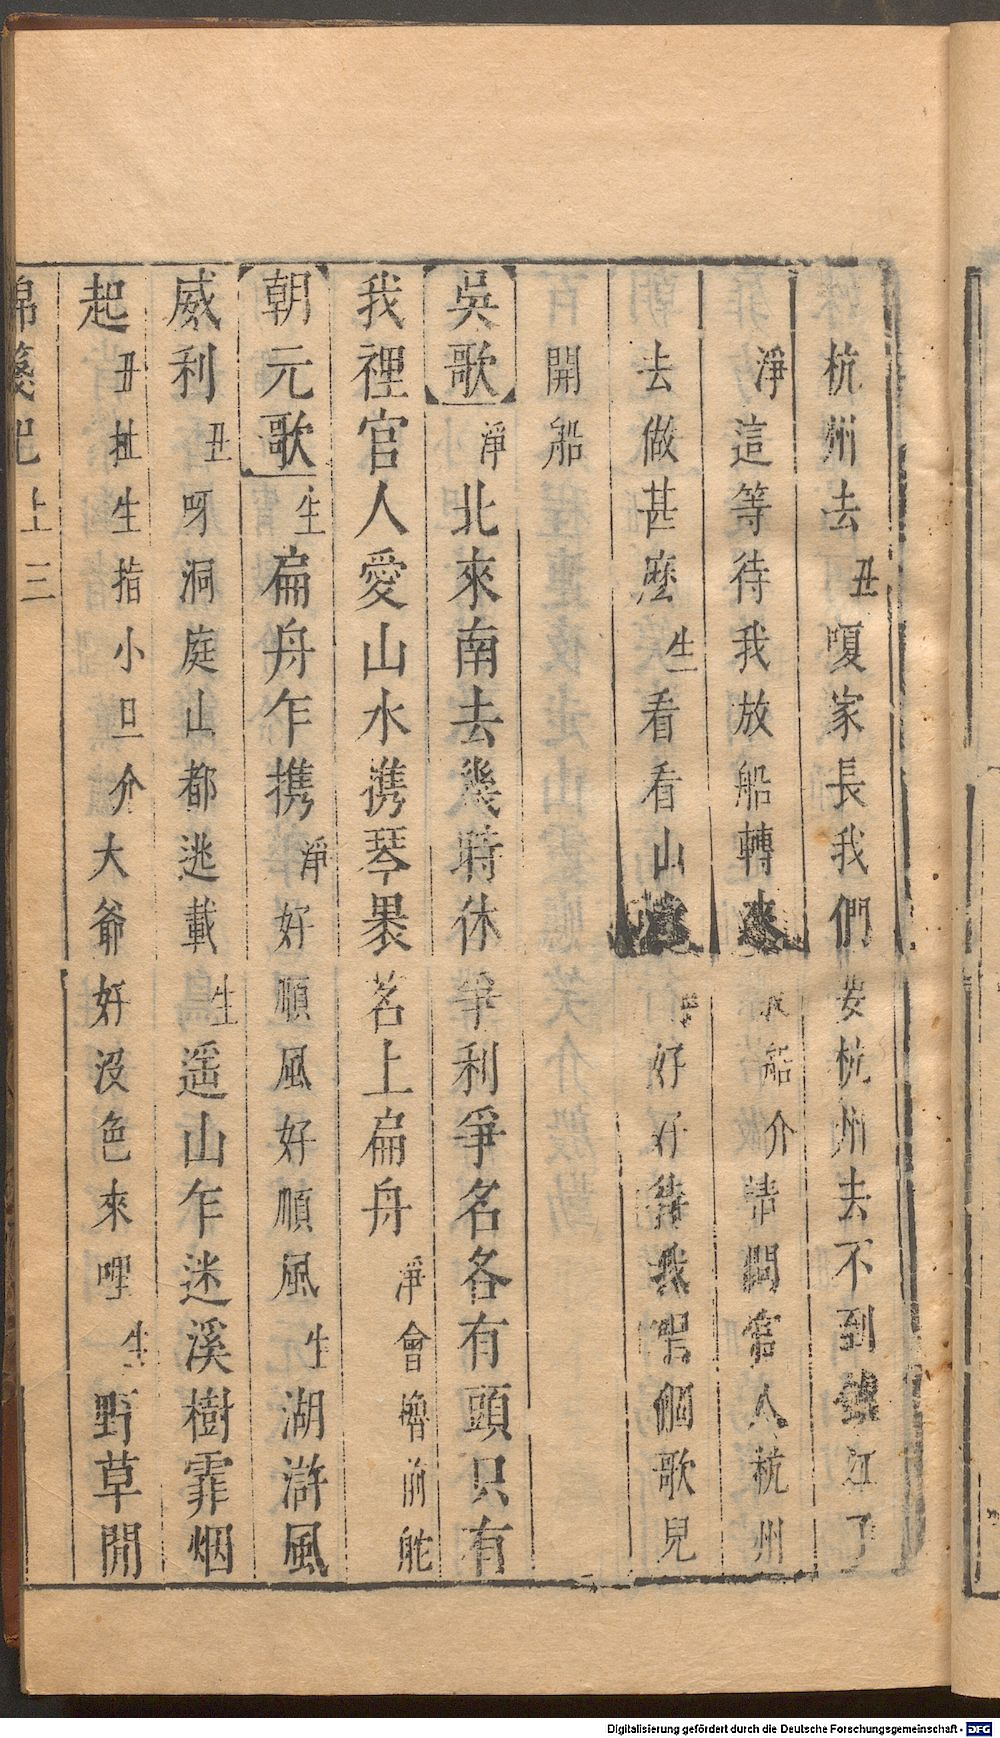 杭州去丑嗄家長我們要杭州去不到錢江了
淨這等待我放船轉來放船介請問官人杭州
去做甚麽生看看山色淨好好待我唱個歌兒
開船
【吳歌】淨北來南去幾時休爭利爭名各有頭只有
我裡官人愛山水携琴褁茗上扁舟淨會櫓前舵
【朝元歌】生扁舟乍携淨好順風好順風生湖滸風
威利丑呀洞庭山都逃載生遥山乍迷溪樹霏烟
起丑扯生指小旦介大爺好沒色來哩生野草開
錦箋記上三
Digitalisierung gefördert durch die Deutsche Forschungsgemeinschaft - DFG